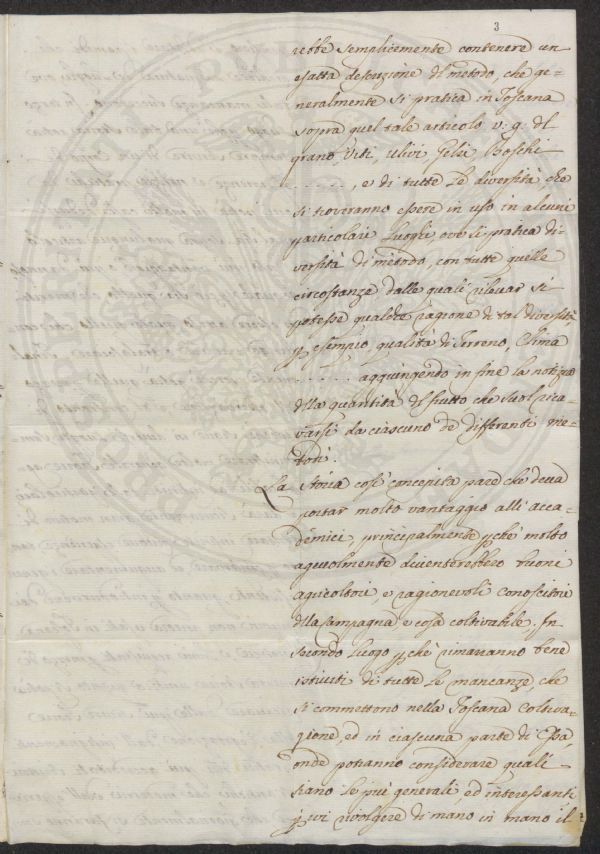 3
rebbe semplicemente contenere un'
esatta descrizione del metodo, che ge=
neralmente si pratica in Toscana
sopra quel tale articolo v: g: del
grano Viti, ulivi, Gelsi, Boschi
. . . . . . , e di tutte le diversità, che
si troveranno essere in uso in alcuni
particolari Luoghi ove si pratica di=
versità di metodo, con tutte quelle
circostanze dalle quali rilevar si
potesse qualche ragione di tal diversità,
p esempio qualità di Terreno, Clima
. . . . . . aggiungendo in fine la notizia
della quantità del frutto che suol rica=
varsi da ciascuno de differenti me=
todi.
La storia così concepita pare che deva
portar molto vantaggio alli acca=
demici, principalmente pchè molto
agevolmente diventerebbero buoni
agricoltori, e ragionevoli conoscitori
della campagna, e cosa coltivabile, In
secondo luogo pchè rimarranno bene
istruiti di tutte le mancanze, che
si commettono nella Toscana Coltiva=
zione, ed in ciascuna parte di Essa,
onde potranno considerare quali
siano le più generali, ed interessanti
p ivi rivolgere di mano in mano il
PROSPERITATI PUBL